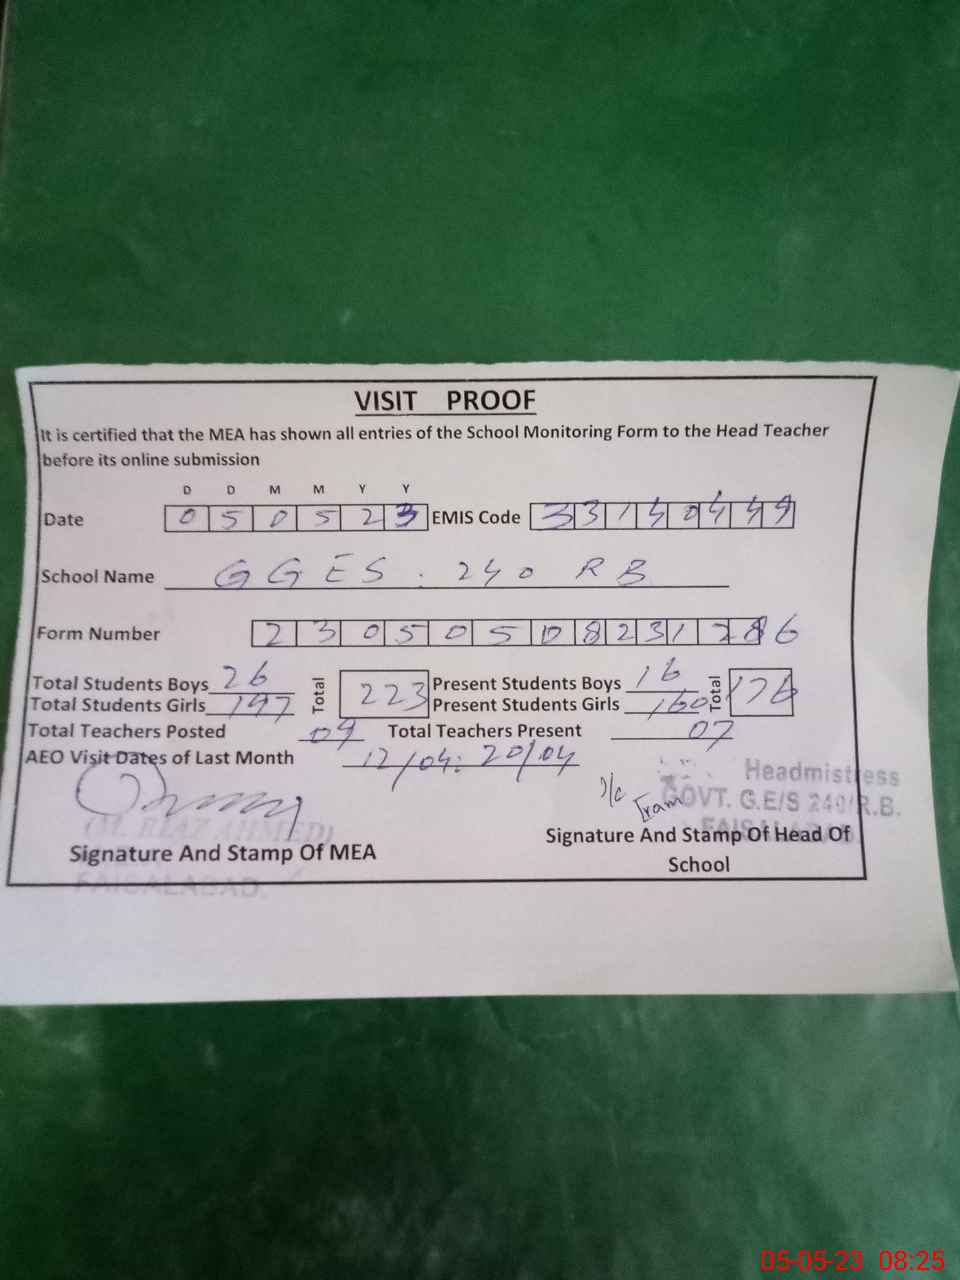 VISIT PROOF
It is certified that the MEA has shown all entries of the School Monitoring Form to the Head Teacher
before its online submission
D D M M Y Y
Date 0 5 0 5 2 3 EMIS Code
School Name GGES. 240 RB
Form Number
Total Students Boys 26 Total 223 Present Students Boys 16 Total 176
Total Students Girls 197 Present Students Girls 160
Total Teachers Posted 09 Total Teachers Present 07
AEO Visit Dates of Last Month 12/04: 20/04
I/c Iram
Headmistress
GOVT. G.E/S 240/R.B.
FAISALABAD.
(M. RIAZ AHMED)
Signature And Stamp Of MEA
FAISALABAD.
Signature And Stamp Of Head Of
School
05-05-23 08:25